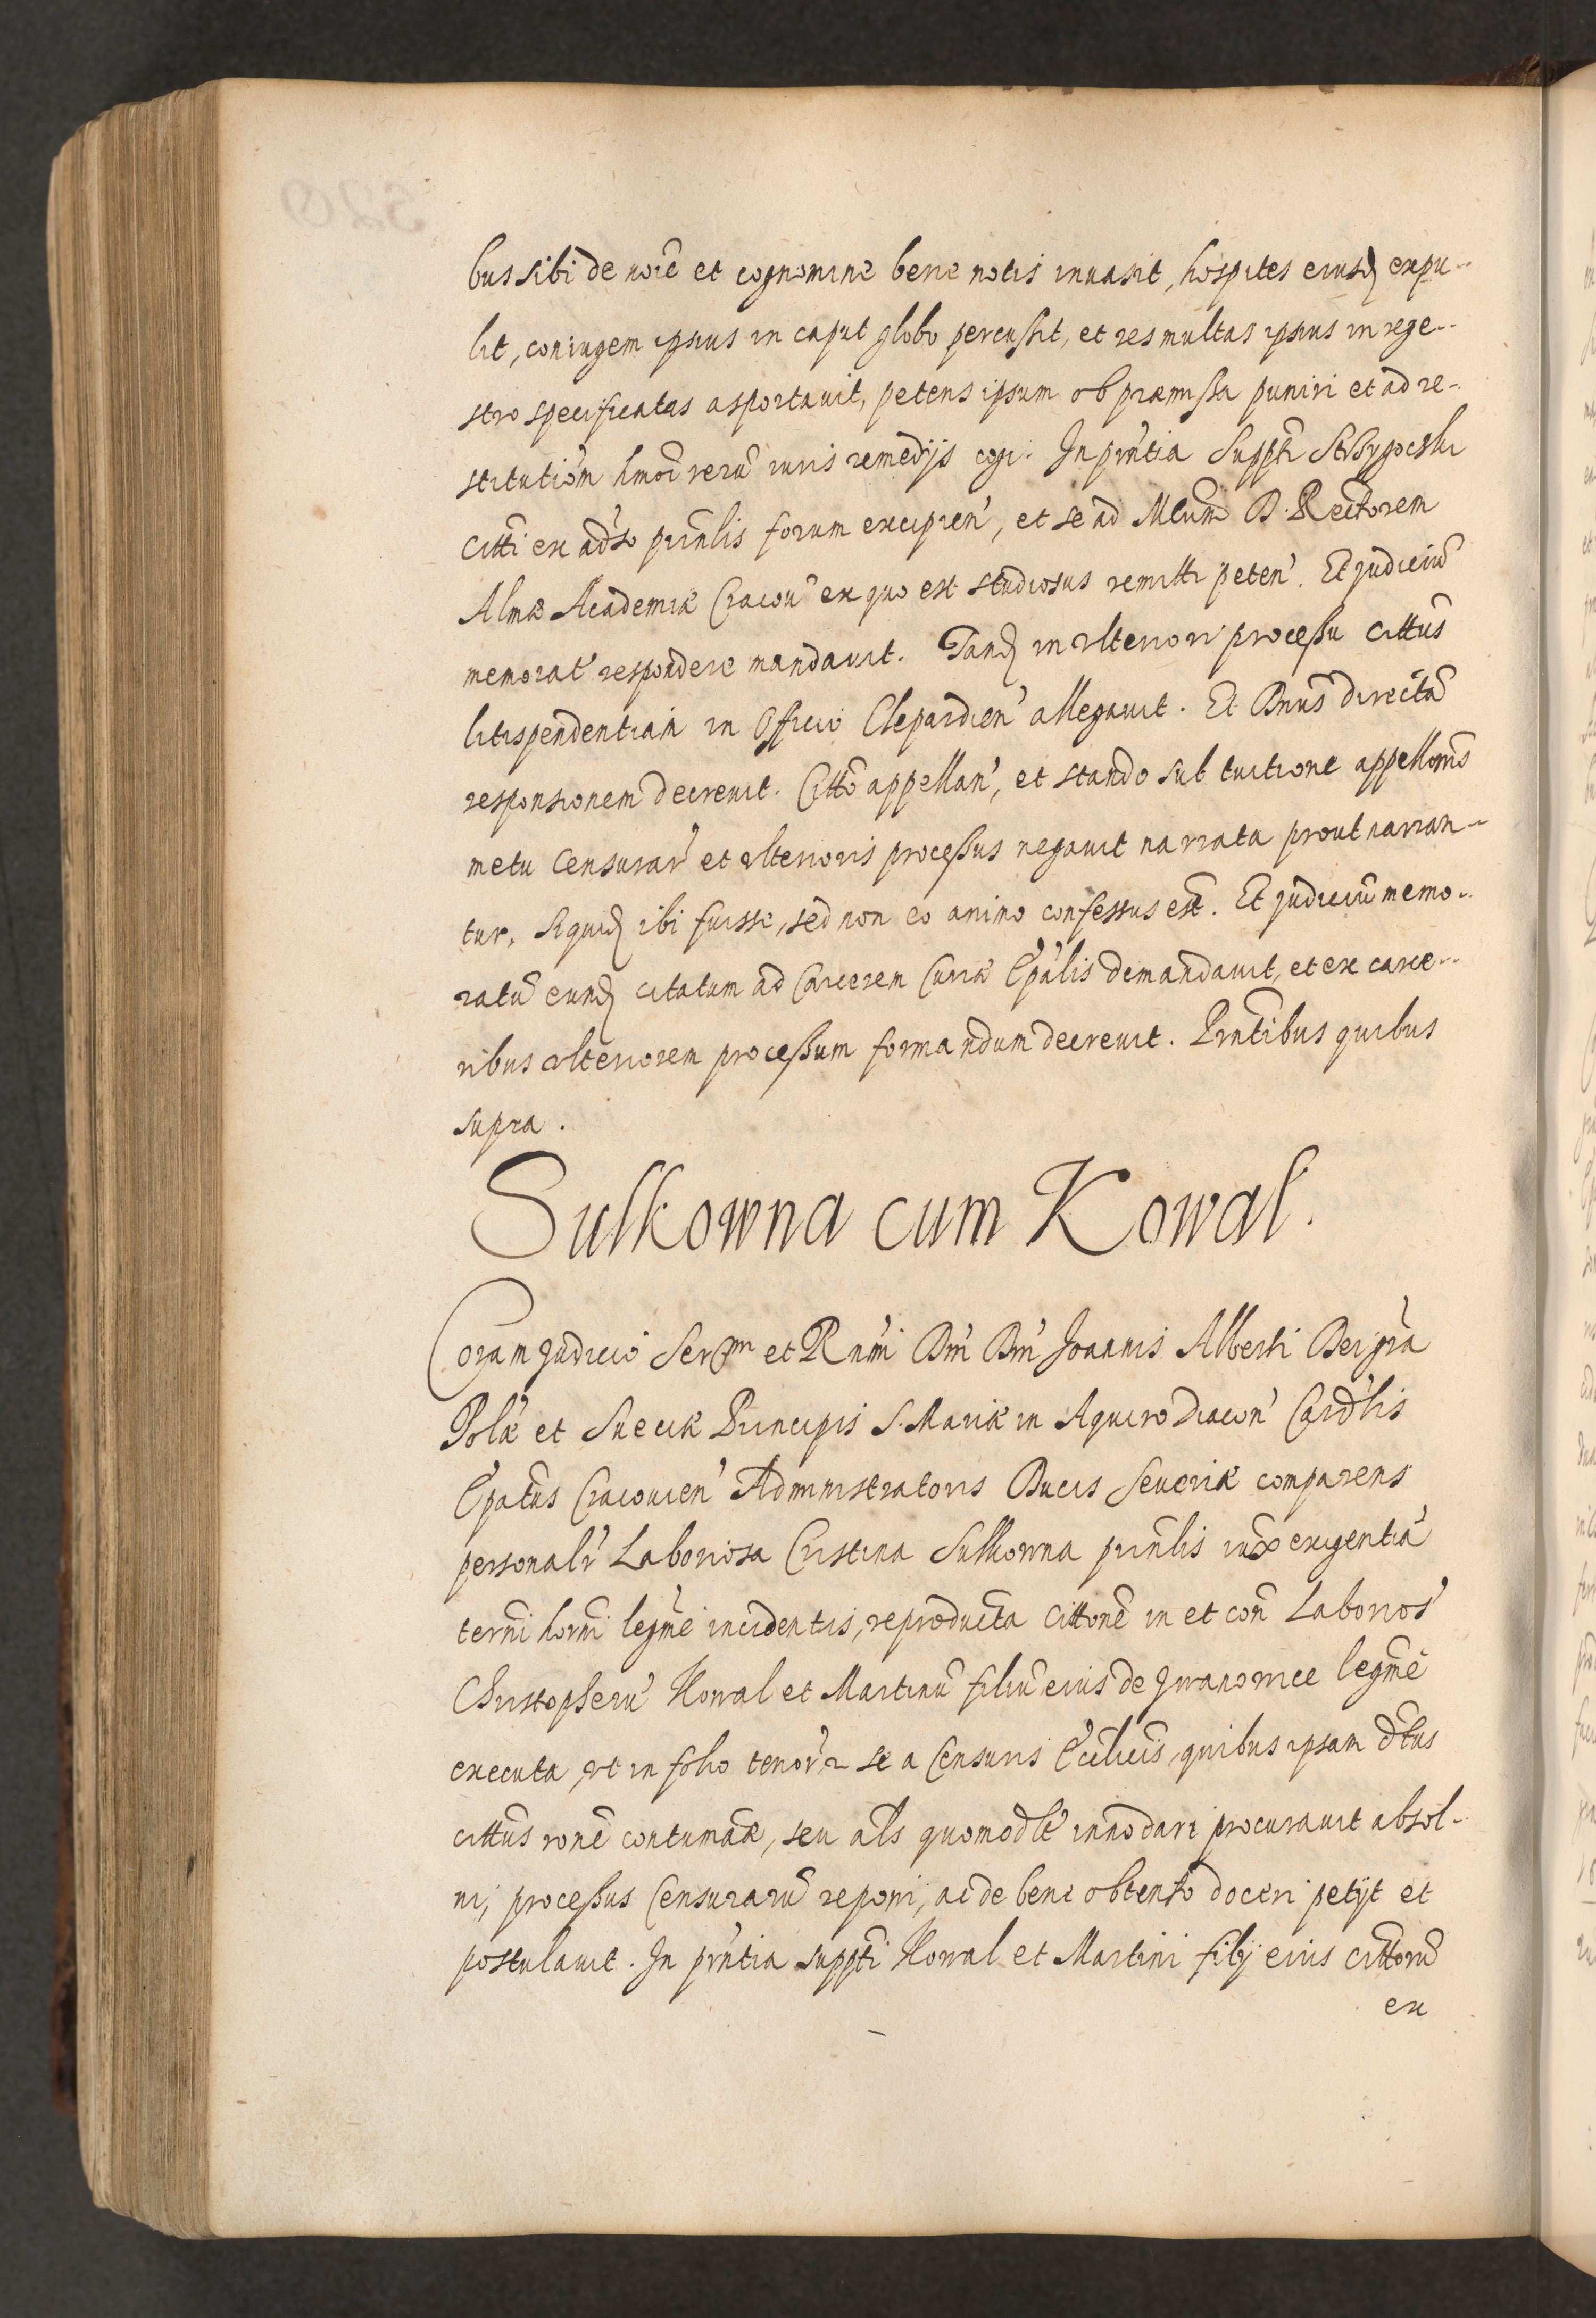 bus sibi de noīē et cognomine bene notis inuasit, hospites eiusd expu-
lit, coniugem ipsius in caput globo percussit, et res multas ipsius in rege-
stro specificatas asportauit, petens ipsum ob præmissa puniri et ad re-
stitutiōm hmōi rerū iuris remedijs cogi. In pn̄tia Suppti
citti ex aduso prin̄lis forum excipien', et se ad Mcum D. Rectorem
Almæ Academiæ Cracou' ex quo est studiosus remitti peten'. Et Judiciū
memorat' respondere mandauit. Tand in vlteriori processu cittūs
litispendentiam in Officio Clepardien' allegauit. Et Dnus directā
responsionem decreuit. Citto appellan', et stando sub tuitione appellonis
metu Censurar' et vlterioris processus negauit narrata prout narran-
tur, siquid ibi fuisse, sed non eo animo confessus est. Et Judiciū memo-
ratū eund citatum ad Carcerem Curiæ Ep̄alis demandauit, et ex carce-
ribus vlteriorem processum formandum decreuit. Prn̄tibus quibus
supra.
Sulkowna cum Kowal.
Coram Judicio Sermi et Rn̄mi Dni Dni Joannis Alberti Dei gr̄a
Polæ et Sueciæ Principis S. Mariæ in Aquiro Diacon' Cardlis
Ep̄atus Cracouien' Administratoris Ducis Seueriæ comparens
personalr' Laboriosa Cristina Sulkowna prin̄lis iuxta exigentiā
termi horni legme incidentis, reproducta cittone in et con̄ Laborios'
Christopherū Kowal et Martinū filiū eius de Jwanowice legme
executa, vt in folio tenoris se a Censuris Ecclicis, quibus ipsam dtus
cittus rone contumaæ, seu als quomodlt' innodari procurauit absol-
ui, processus Censurarū reponi, ac de bene obtento doceri petijt et
postulauit. In pn̄tia suppti Kowal et Martini filij eius cittorū
ex